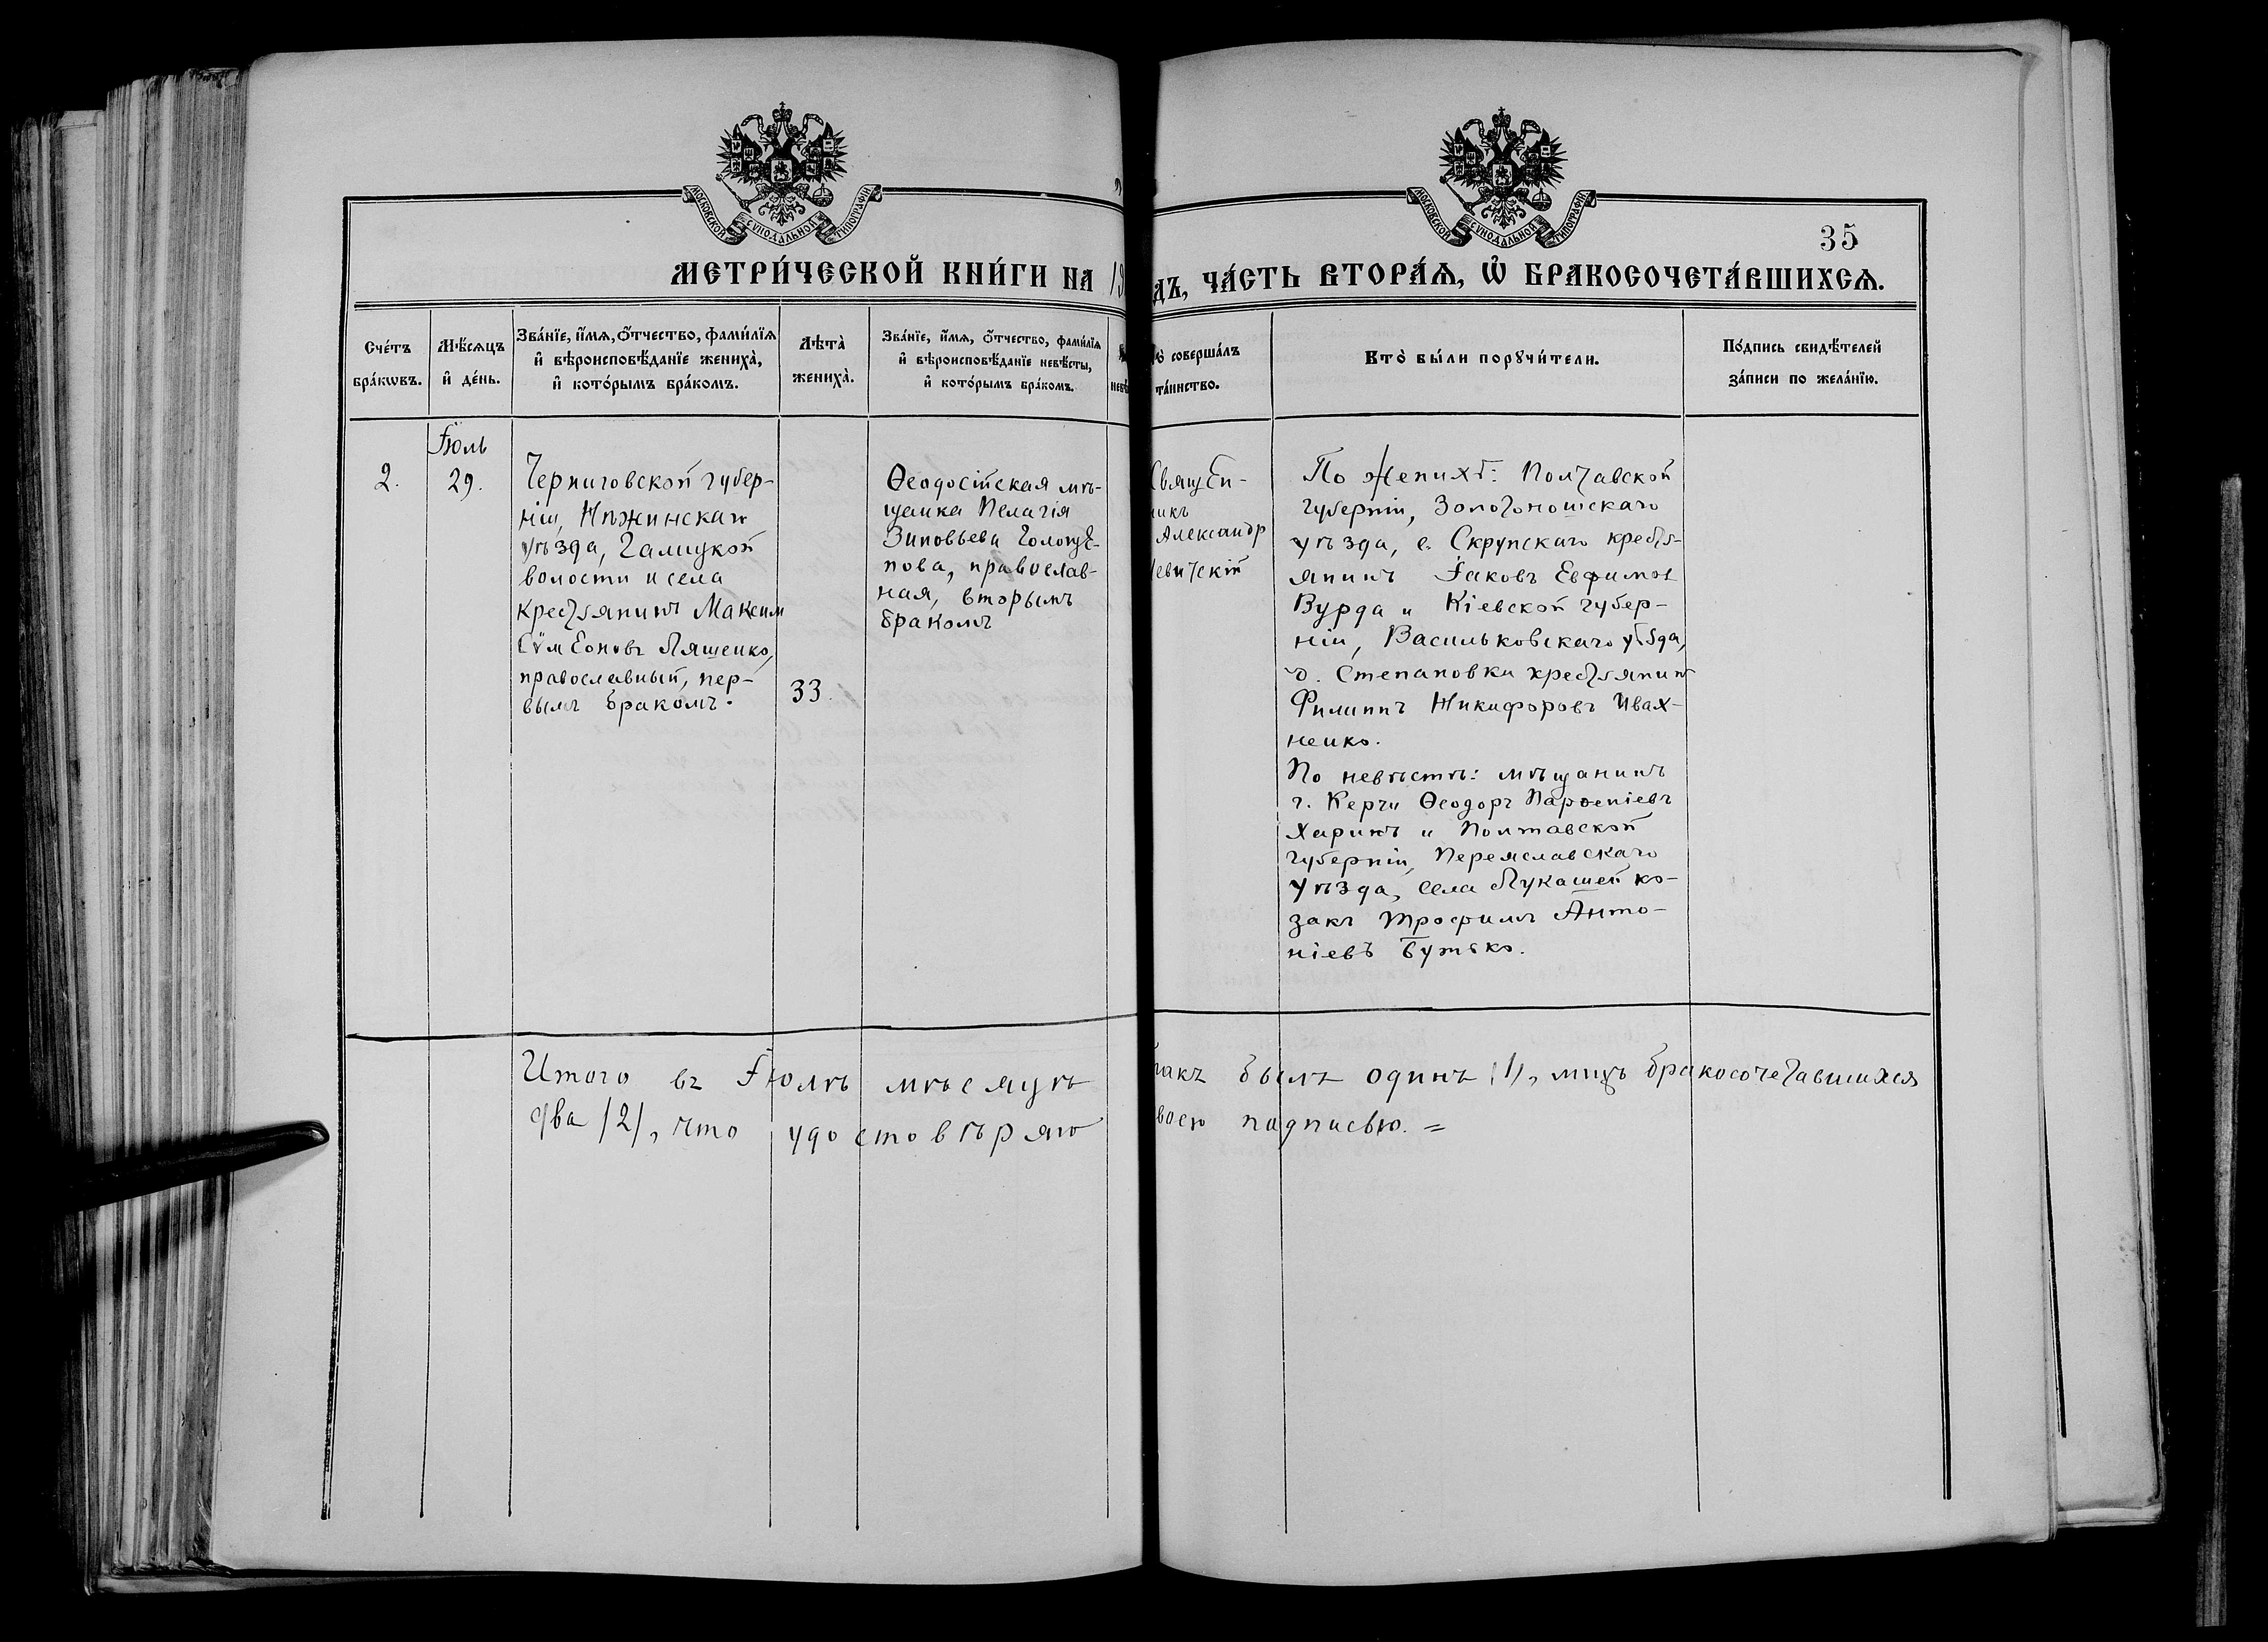 МОСКОВСКОЙ СУНОДАЛЬНОЙ ТИПОГРАФІИ
МОСКОВСКОЙ СУНОДАЛЬНОЙ ТИПОГРАФІИ
35
МЕТРИ́ЧЕСКОЙ КНИ́ГИ НА 19
ДЪ, ЧА́СТЬ ВТОРА́Ѧ, Ѽ БРАКОСОЧЕТА́ВШИХСѦ.
Сче́тъ
бра́кѡвъ.
Мѣ́сѧцъ
и҆ де́нь.
Зва́нїе, и҆́мѧ, ѻ҆́тчество, фами́лїѧ
и҆ вѣроисповѣ́данїе жениха̀,
и҆ кото́рымъ бра́комъ.
Лѣта̀
жениха̀.
Зва́нїе, и҆́мѧ, ѻ҆́тчество, фами́лїѧ
и҆ вѣроисповѣ́данїе невѣ́сты,
и҆ кото́рымъ бра́комъ.
невѣ
то̀ соверша́лъ
та́инство.
Кто̀ бы́ли порꙋчи́тели.
По́дпись свидѣ́телей
за́писи по жела́нїю.
2.
Іюль
29.
Черниговской губер-
ніи, Нѣжинскаго
уѣзда, Галицкой
волости и села
крестьянинъ Максим
Сѵмеоновъ Ляшенко,
православный, пер-
вымъ бракомъ.
33.
Ѳеодосійская мѣ-
щанка Пелагія
Зиновьева Голоще-
пова, православ-
ная, вторымъ
бракомъ
Священ-
никъ
Александр
евитскій
По женихѣ: Полтавской
губерніи, Золотоношскаго
уѣзда, с. Скрупскаго кресть-
янинъ Іаковъ Евфимов
Бурда и Кіевской губер-
ніи, Васильковскаго уѣзда,
д. Степановки крестьянин
Филиппъ Никифоровъ Ивах-
ненко.
По невѣстѣ: мѣщанинъ
г. Керчи Ѳеодоръ Парѳеніевъ
Харинъ и Полтавской
губерніи, Переяславскаго
уѣзда, села Лукашей ко-
закъ Трофимъ Анто-
ніевъ Бутько.
Итого въ Іюлѣ мѣсяцѣ
ракъ былъ одинъ (1), лицъ бракосочетавшихся
два /2/, что удостовѣряю
воею подписью. =